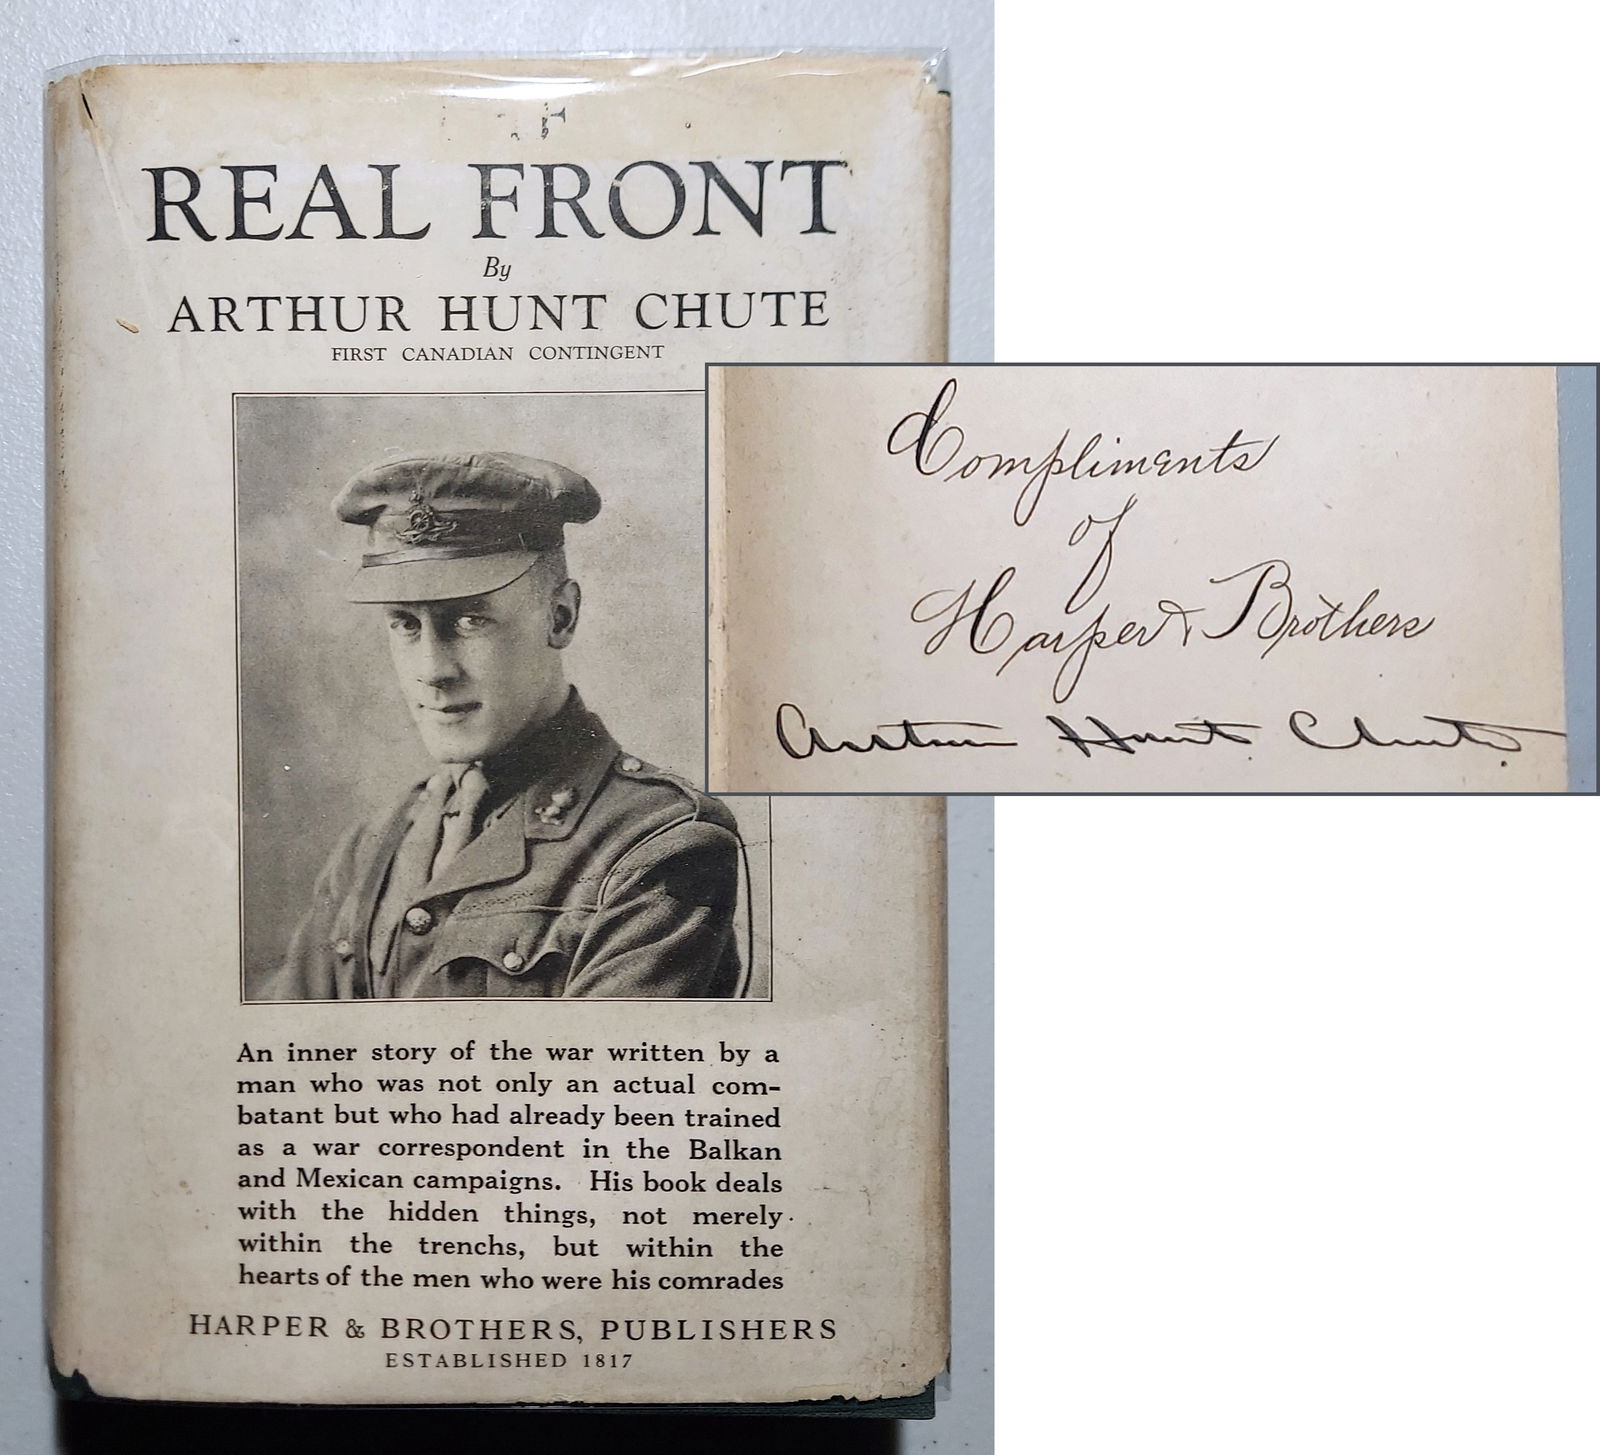 REAL FRONT
By
ARTHUR HUNT CHUTE
FIRST CANADIAN CONTINGENT
An inner story of the war written by a
man who was not only an actual com-
batant but who had already been trained
as a war correspondent in the Balkan
and Mexican campaigns. His book deals
with the hidden things, not merely
within the trenchs, but within the
hearts of the men who were his comrades
HARPER & BROTHERS, PUBLISHERS
ESTABLISHED 1817
Compliments
of
Harper & Brothers
Arthur Hunt Chute.